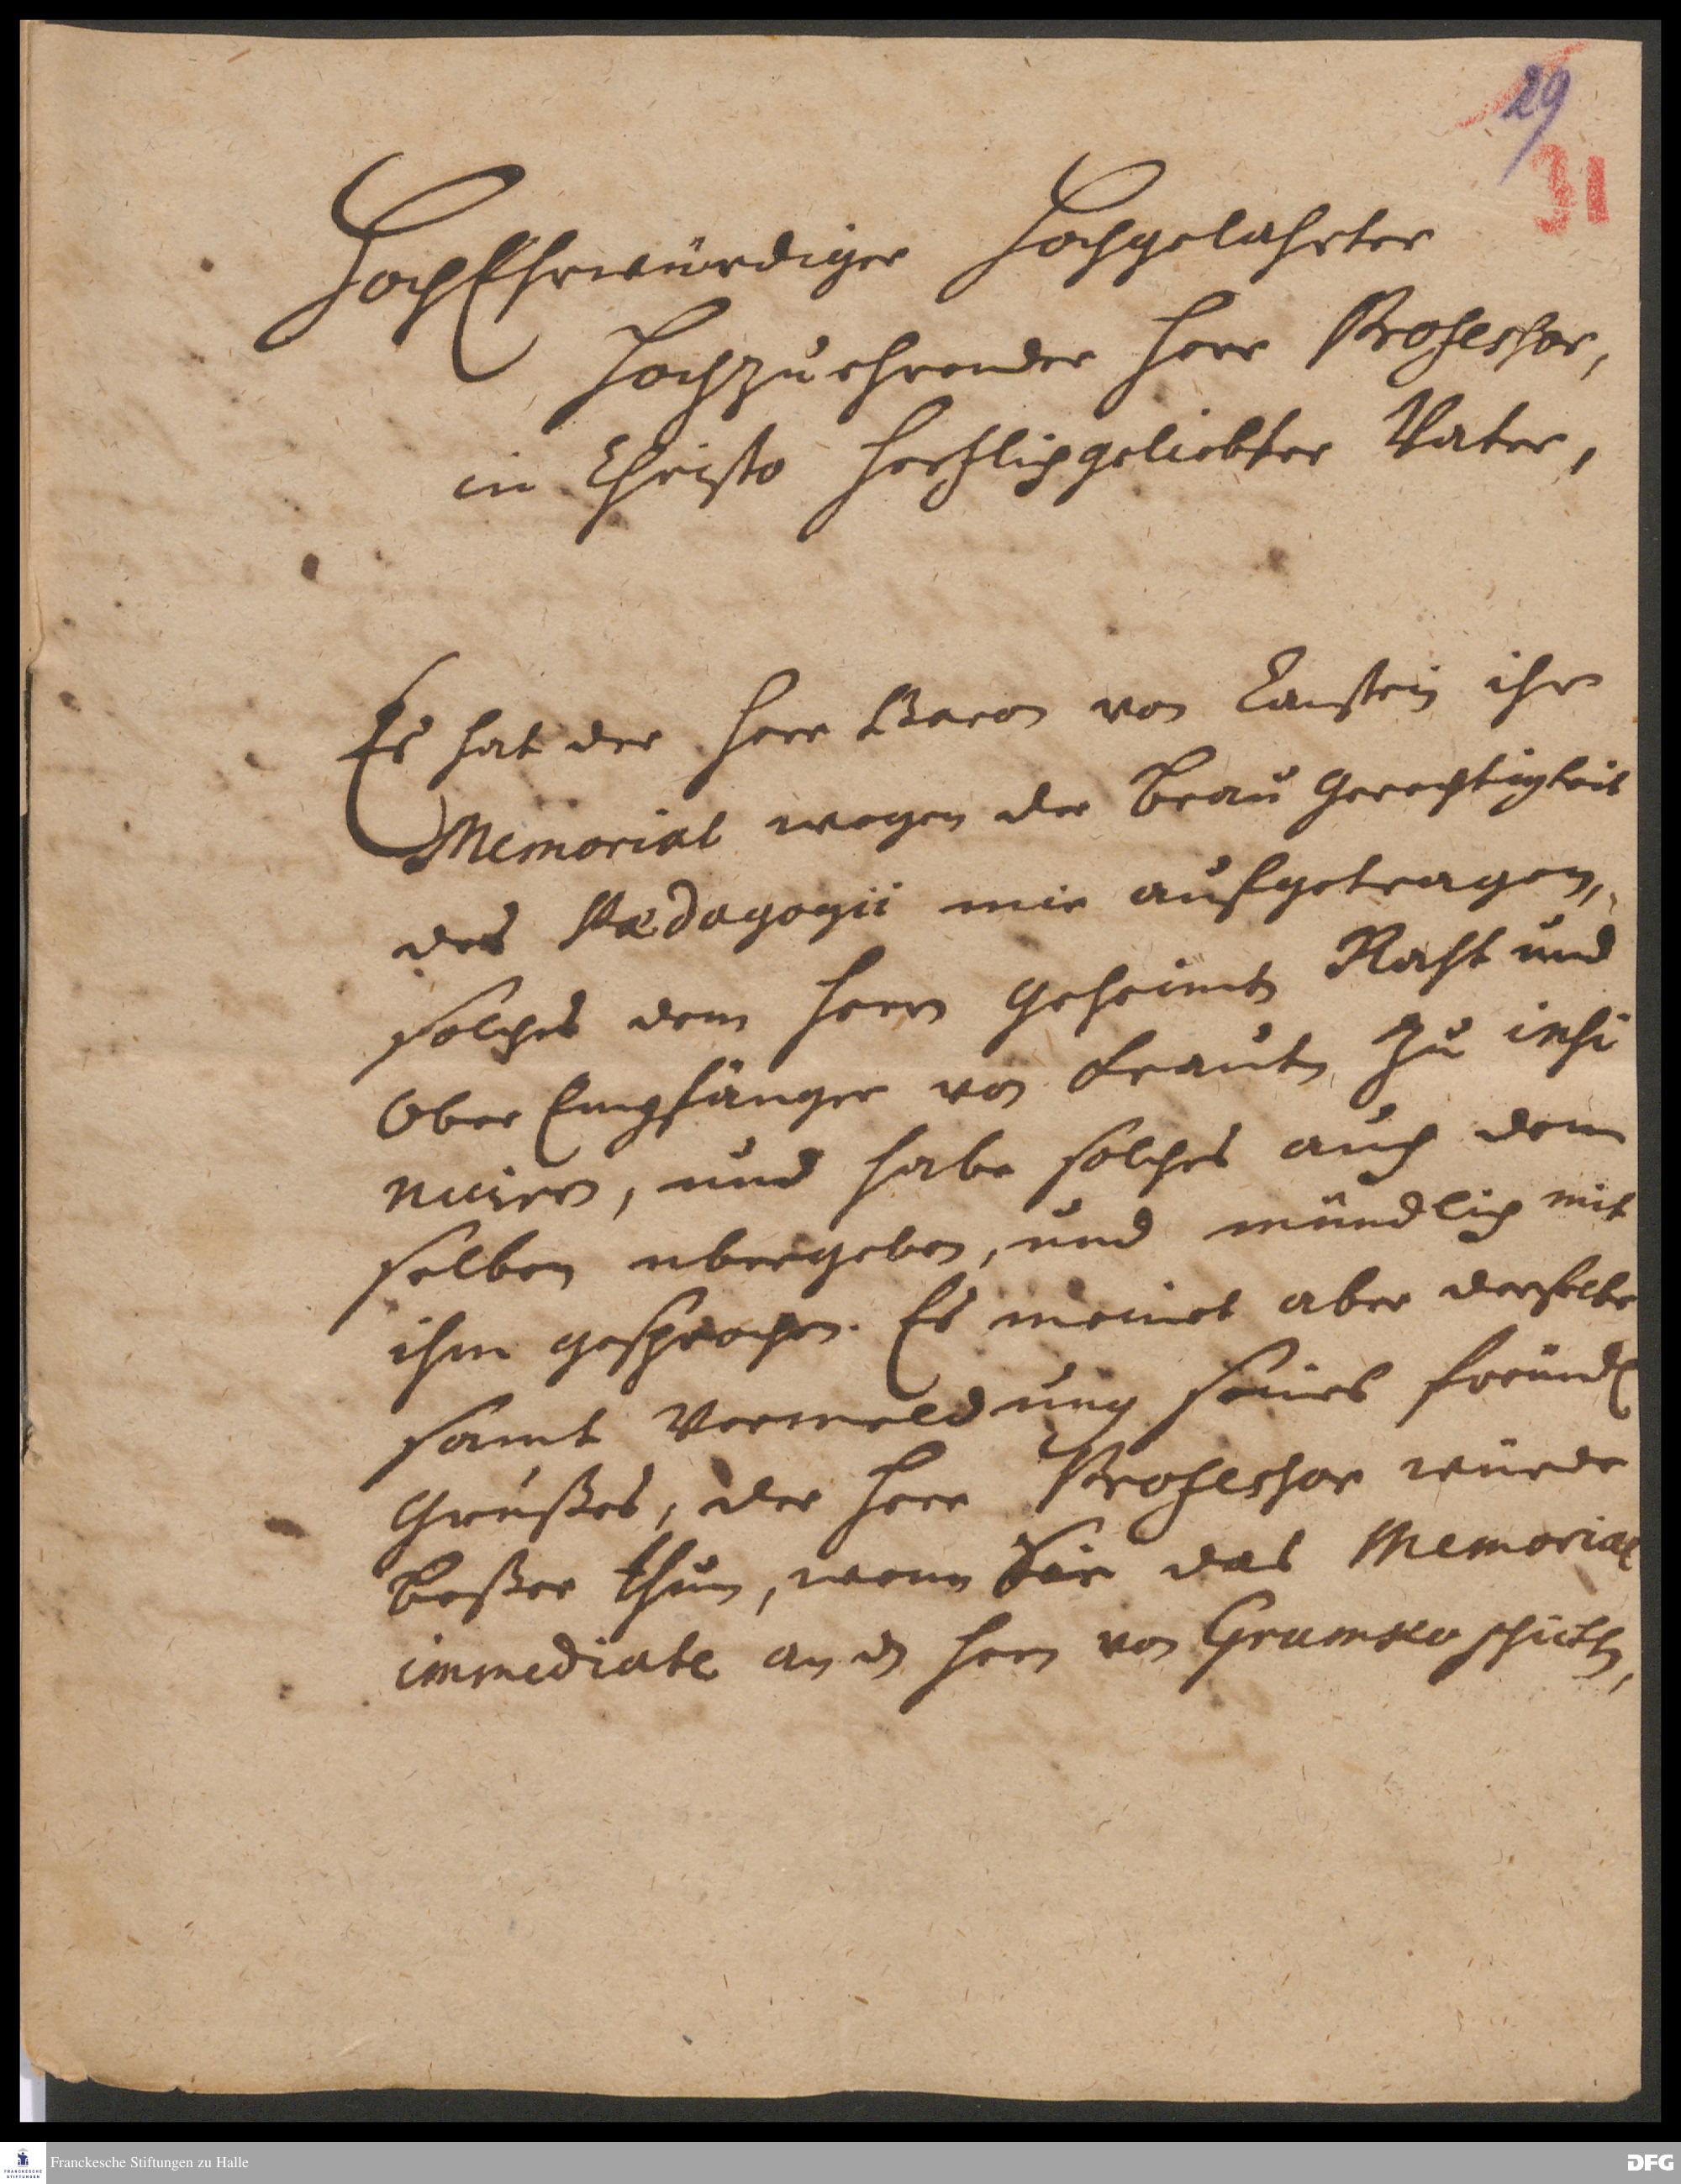 29
31
HochEhrwürdiger Hochgelahrter
Hochzuehrender Herr Professor,
in Christo hertzlichgeliebter Vater,
Es hat der Herr Baron von Canstein ihr
Memorial wegen der Brau Gerechtigkeit
des Pædagogii mir aufgetragen,
solches dem Herrn Geheimten Raht und
Ober Empfänger von Krauten zu insi
nuiren, und habe solches auch dem
selben übergeben, und mündlich mit
ihm gesprochen. Es meinet aber derselbe
samt Vermeldung seines freundl
Grußes, der Herr Professor würde
beßer thun, wenn Sie das Memorial
immediate an den Herrn von Grumko schickten,
Franckesche Stiftungen zu Halle
FRANCKESCHE
STIFTUNGEN
DFG